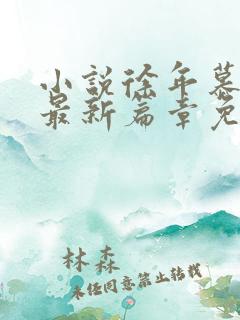 小说徐年慕
最新篇章免
林森
未经同意禁止转载